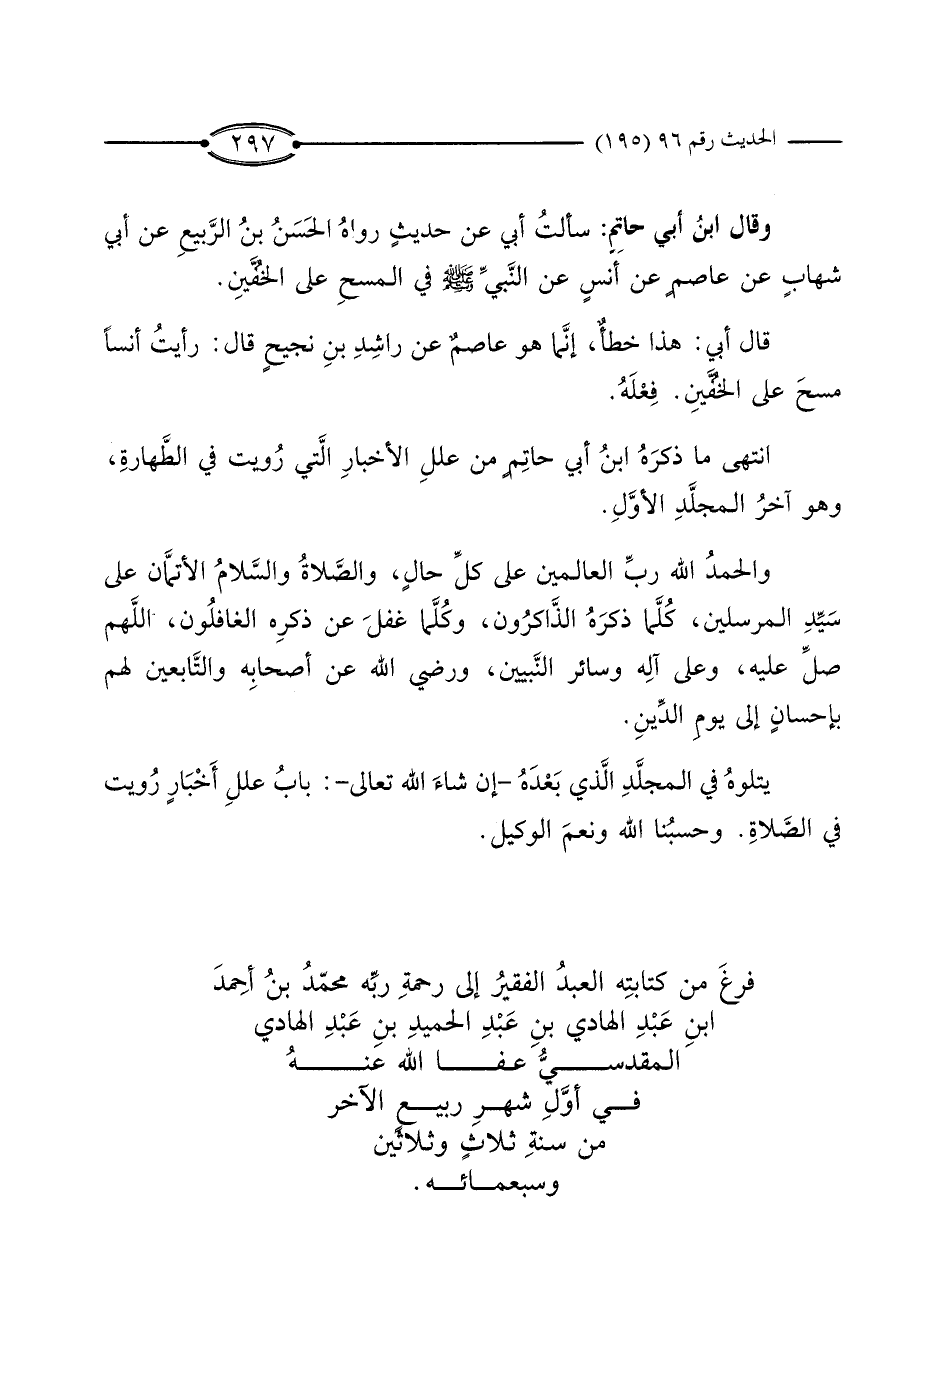 الحديث رقم ٩٦ (١٩٥)
٢٩٧
وقال ابنُ أبي حاتِمٍ: سألتُ أبي عن حديثٍ رواهُ الحَسَنُ بنُ الرَّبيعِ عن أبي
شهابٍ عن عاصمٍ عن أنسٍ عن النَّبيِّ ﷺ في المسحِ على الخُفَّينِ.
قال أبي: هذا خطأٌ، إنَّما هو عاصمٌ عن راشِدِ بنِ نجيحٍ قال: رأيتُ أنساً
مسحَ على الخُفَّينِ. فِعْلَهُ.
انتهى ما ذكرَهُ ابنُ أبي حاتِمٍ من عللِ الأخبارِ الَّتي رُويت في الطَّهارةِ،
وهو آخرُ المجلَّدِ الأوَّلِ.
والحمدُ الله ربِّ العالمين على كلِّ حالٍ، والصَّلاةُ والسَّلامُ الأتمَّان على
سَيِّدِ المرسلين، كُلَّما ذكرَهُ الذَّاكرُون، وكُلَّما غفلَ عن ذكرِه الغافلُون، اللَّهم
صلِّ عليه، وعلى آلِه وسائر النَّبيين، ورضي الله عن أصحابِه والتَّابعين لهم
بإحسانٍ إلى يومِ الدِّينِ.
يتلوهُ في المجلَّدِ الَّذي بَعْدَهُ -إن شاءَ الله تعالى-: بابُ عللِ أَخْبَارٍ رُويت
في الصَّلاةِ. وحسبُنا الله ونعمَ الوكيل.
فرغَ من كتابتِه العبدُ الفقيرُ إلى رحمةِ ربِّه محمّدُ بنُ أحمِدَ
ابنِ عَبْدِ الهادي بنِ عَبْدِ الحميدِ بنِ عَبْدِ الهادي
المقدسيُّ عفا الله عَنهُ
في أوَّلِ شهرِ ربيعٍ الآخر
من سنةِ ثلاثٍ وثلاثين
وسبعمائه.